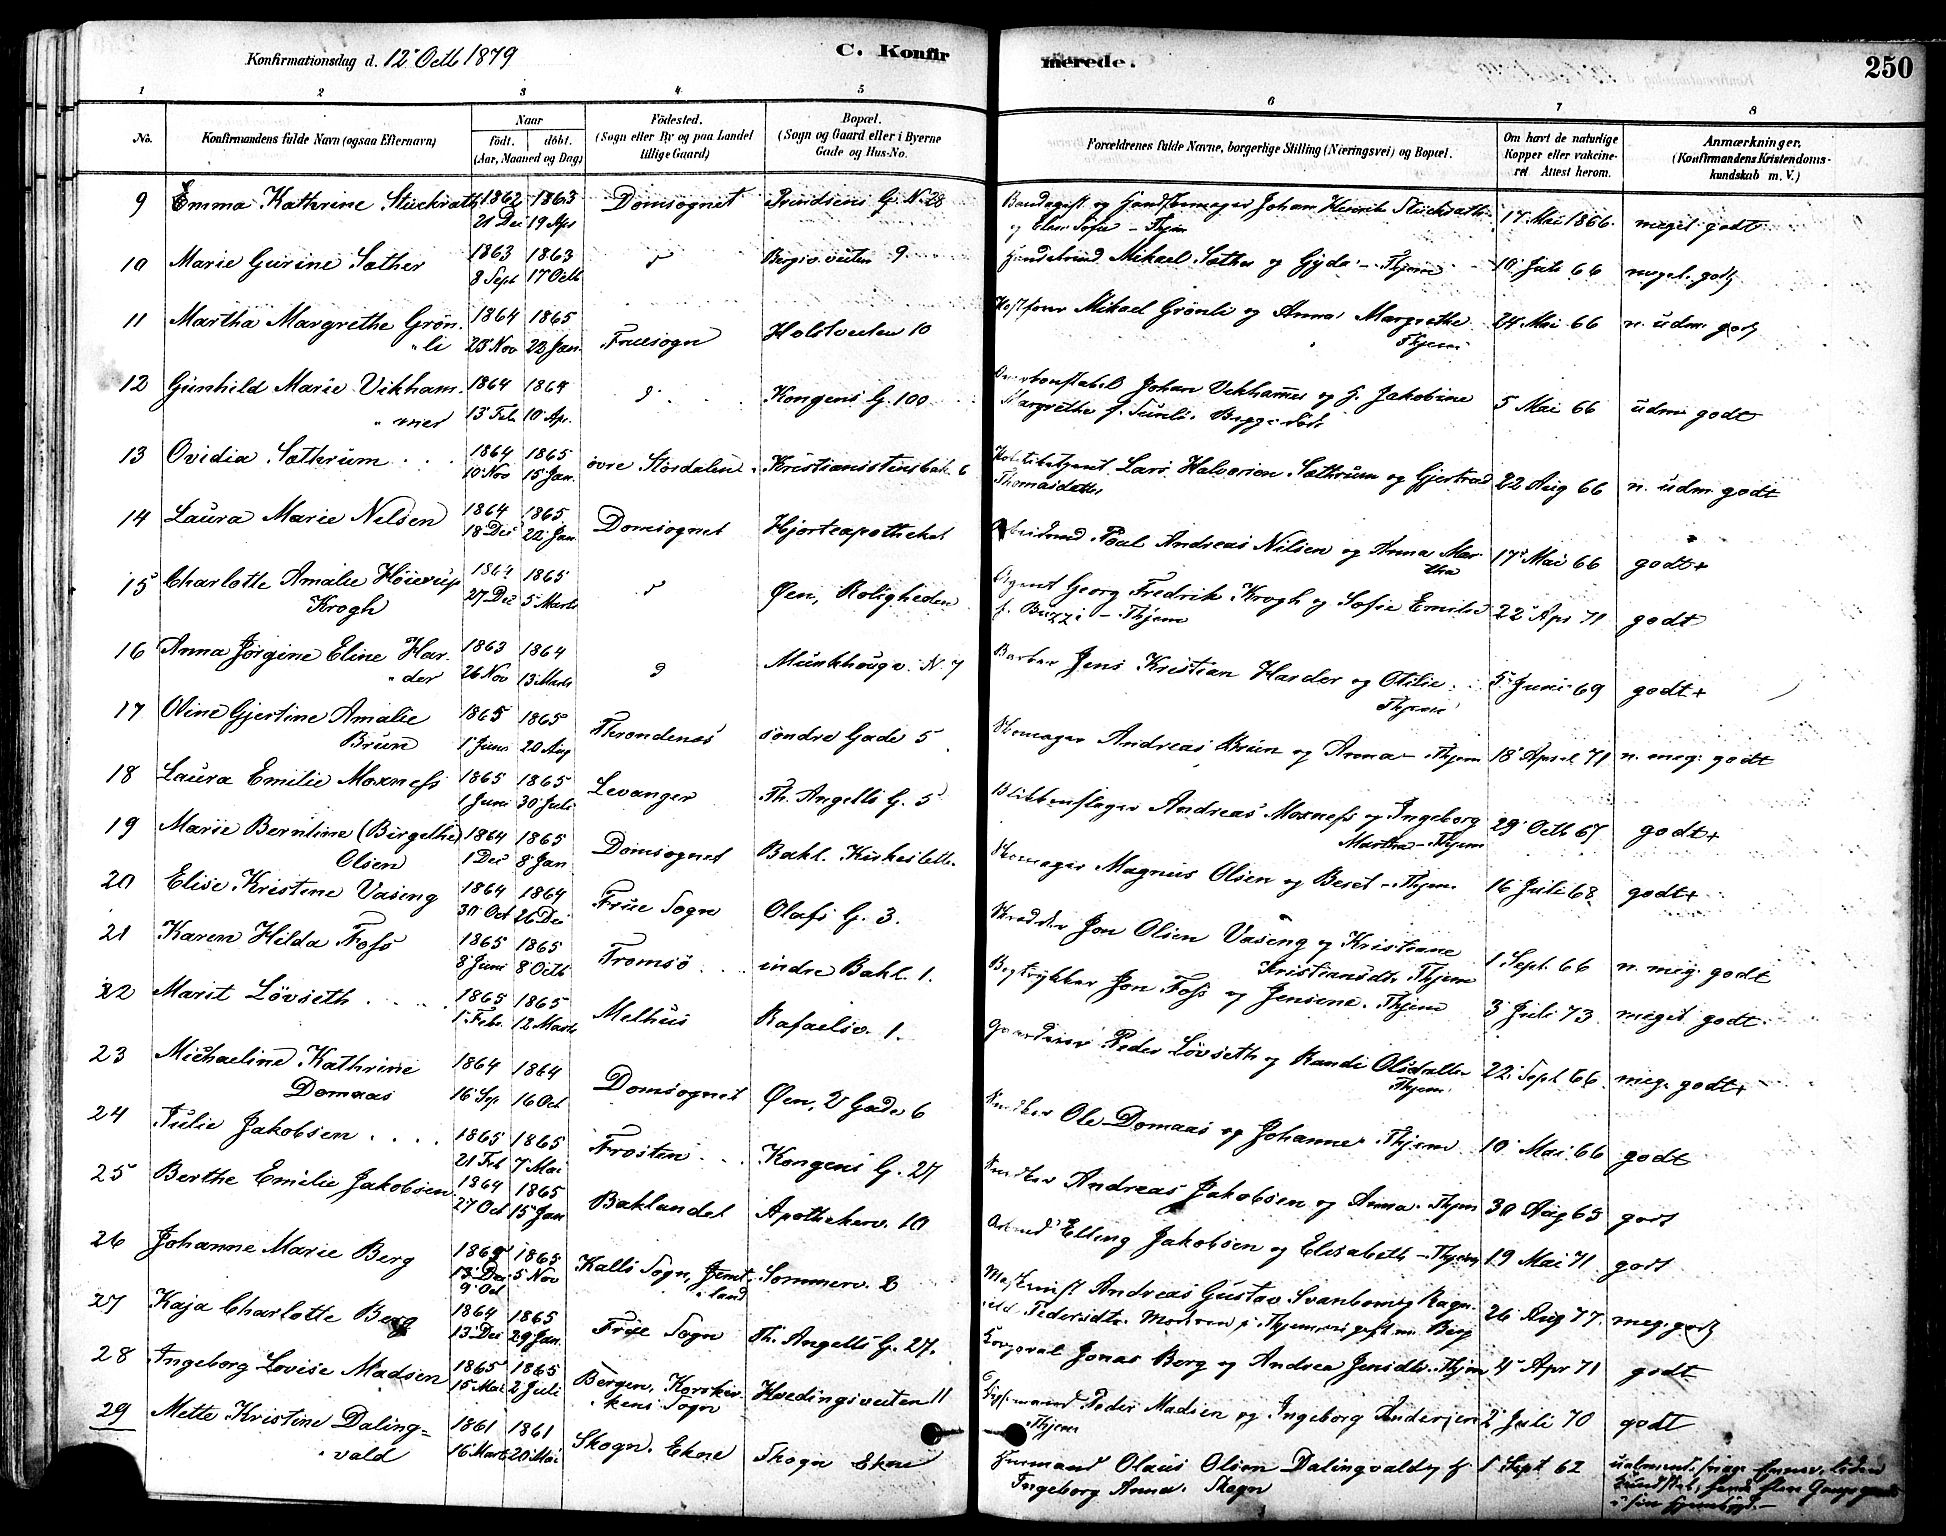 Konfirmationsdag d. 12' Octb 1879
C. Konfirmerede.
250
1 2 3 4 5 6 7 8
No.
Konfirmandens fulde Navn (ogsaa Efternavn)
Naar
födt. döbt.
(Aar, Maaned og Dag)
Födested.
(Sogn eller By og paa Landet
tillige Gaard)
Bopæl.
(Sogn og Gaard eller i Byerne
Gade og Hus-No.
Forældrenes fulde Navne, borgerlige Stilling (Næringsvei) og Bopæl.
Om havt de naturlige
Kopper eller vakcine-
ret Attest herom.
Anmærkninger.
(Konfirmandens Kristendoms-
kundskab m. V.)
9 Emma Kathrine Stückrath 1862 1863 Domsognet Prindsens G. N. 28 Johan Henrik Stückrath 17 Mai 1866. meget godt
21 Dec 19 Apr Sofie - Thjem
10 Marie Gurine Sæther 1863 1863 9 Mikael Sæther og Gyda - Thjem 10 Juli 66 meget godt
8 Sept 17 Octb
11 Martha Margrethe Grön- 1864 1865 Fruesogn Holstveiten 10 Mikael Grönli og Anna Margrethe 24 Mai 66 n. udm. godt
"li 23 Nov 22 Jan. Thjem
12 Gunhild Marie Vikham- 1864 1864 Kongens G. 100 Johan Vikhammer og H. Jakobine 5 Mai 66 udm godt
"mer 13 Feb. 10 Ap. Margrethe f.
13 Ovidia Sæthrum 1864 1865 övre Stordalen Kristianistensbak. 6 Lars Halvorsen Sæthrum og Gjertrud 22 Aug 66 n. udm. godt
10 Nov 15 Jan. Thomasdatter
14 Laura Marie Nilsen 1864 1865 Domsognet Hjorteapotheket Poul Andreas Nilsen og Anna Mar- 17 Mai 66 godt+
18 Dec 22 Jan tha
15 Charlotte Amalie Höierup 1864 1865 Öen, Roligheden Agent Georg Fredrik Krogh og Sofie Emilie 22 Apr 71 godt
Krogh 27 Dec 5 Marts f. - Thjem
16 Anna Jörgine Eline Har- 1863 1864 Munkhougv. N. 7 Barber Jens Kristian Harder og Otilie 5 Juni 69 godt+
"der 26 Nov 13 Marts Thjem
17 Oline Gjertine Amalie 1865 1865 Throndenes söndre Gade 5 Skomager Andreas Brun og Anna - Thjem 18 April 71 n. meg. godt
Brun 1 Juni 20 Aug
18 Laura Emilie Moxness 1865 1865 Levanger Th. Angells G. 5 Blikkenslager Andreas Moxness og Ingeborg 29 Octb 67 godt+
1 Juni 30 Juli Martha - Thjem
19 Marie Berntine (Birgethe) 1864 1865 Domsognet Bakl. Skomager Magnus Olsen og Beret - Thjem 16 Juli 68 godt+
Olsen 1 Dec 8 Jan
20 Elise Kristine Vasing 1864 1864 Frue Sogn Olafs G. 3. Skrædder Jon Olsen Vasing og Kristiane 1 Sept 66 n. meg. godt
30 Oct 26 Dec Kristiansdtr Thjem
21 Karen Hilda Foss 1865 1865 Tromsö indre Bakl. 1. Bogtrykker Jon Foss og Jensine. Thjem 3 Juli 73 meget godt
8 Juni 8 Octb
22 Marit Lövseth 1865 1865 Melhus Rafaelsv. 1. Peder Lövseth og Randi Olsdatter 22 Sept 66. meg. godt+
1 Febr. 12 Marts Thjem
23 Michaeline Kathrine 1864 1864 Domsognet Öen, 2 Gade 6 Snedker Ole Domaas og Johanne Thjem 10 Mai 66 godt
Domaas 16 Sep 16 Oct
24 Julie Jakobsen 1865 1865 Frosten Kongens G. 27 Snedker Andreas Jakobsen og Anna. Thjem 30 Aug 65 godt
21 Feb 7 Mai
25 Berthe Emilie Jakobsen 1864 1865 Baklandet Apothekerv. 10 Elling Jakobsen og Elisabeth - Thjem 19 Mai 71 godt
27 Oct 15 Jan
26 Johanne Marie Berg 1865 1865 Kalls Sogn, Jemt- Sommerv. 2 Maskinist Andreas Gustav Svanbom og Ragn- 26 Aug 77. meg. godt
13 Dec 5 Nov land Pedersdtr. Moderen
9 Oct
27 Kaja Charlotte Berg 1864 1865 Frue Sogn Th. Angells G. 27. Korporal Jonas Berg og Andrea Jensdtr. Thjem 4 Apr 71 godt
13 Dec 29 Jan
28 Ingeborg Lovise Madsen 1865 1865 Bergen, Korskir- Hvedingsveiten 11 Peder Madsen og Ingeborg Andersen 2 Juli 70 godt
15 Mai 2 Juli kens Sogn Thjem
29 Mette Kristine Daling- 1861 1861 Skogn. Ekne Skogn Ekne Husmand Olaus Olsen Dalingvald og H. 1 Sept 62
"vald 16 Marts 20 Mai Ingeborg Anna. Skogn